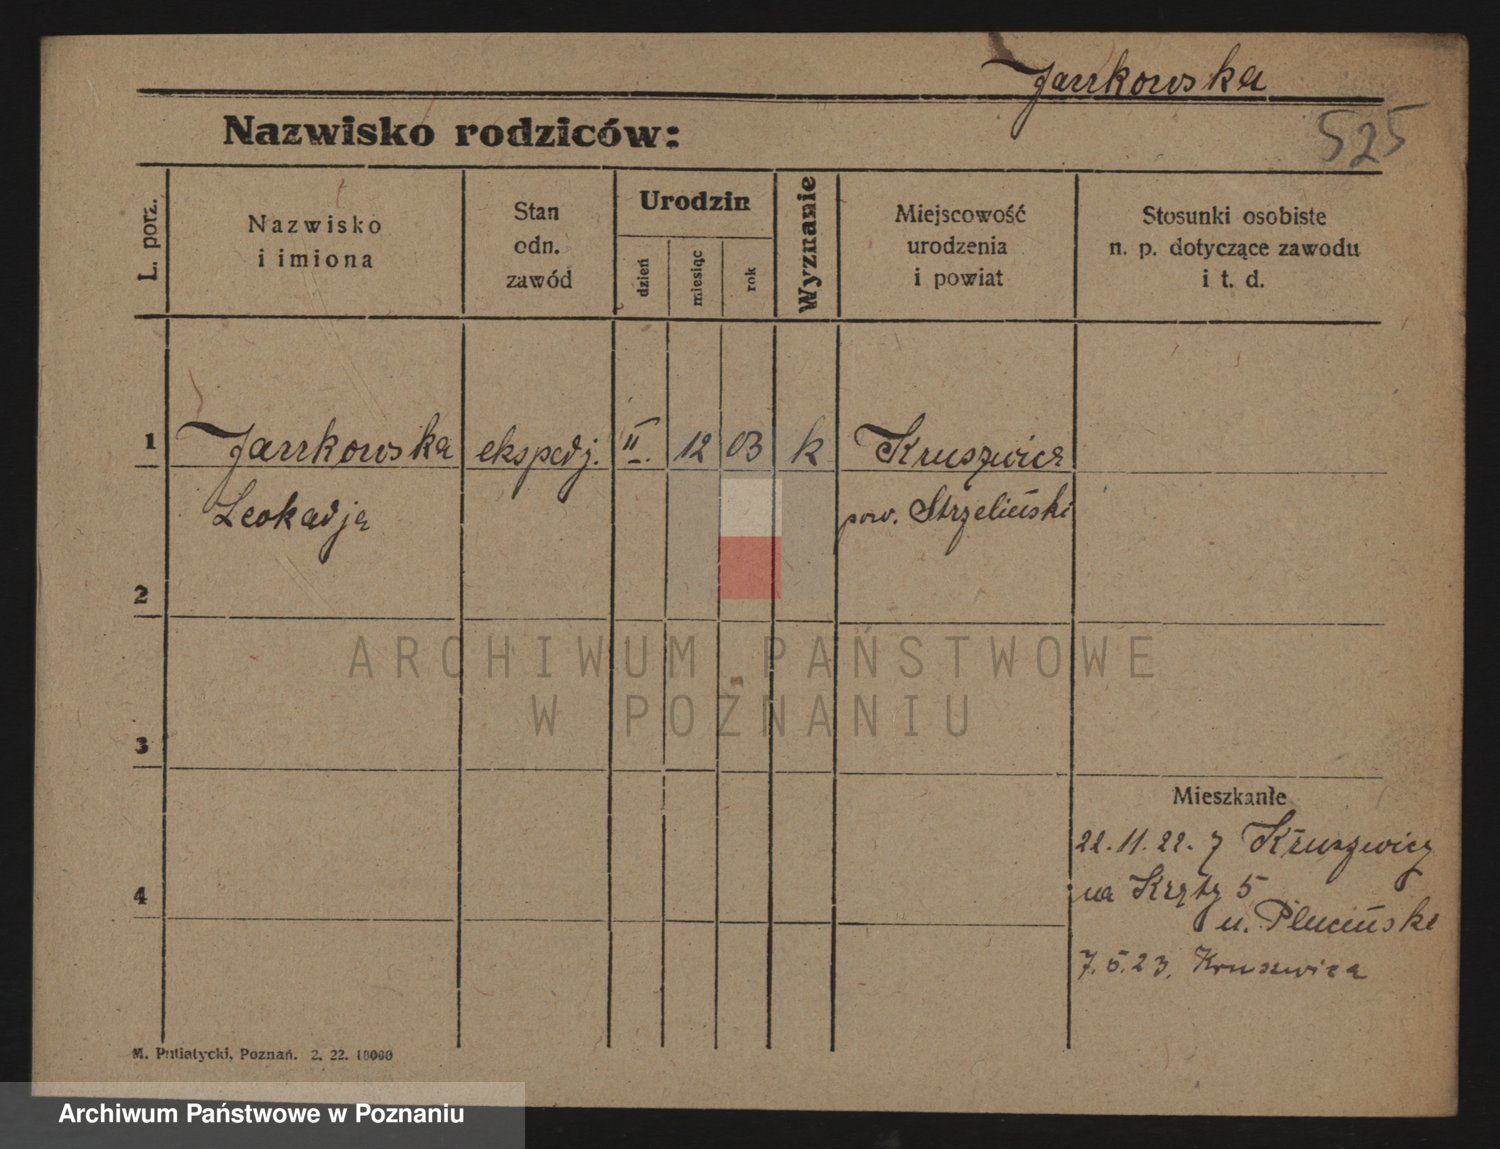 Jarrkowska
525
Nazwisko rodziców:
L. porz.
Nazwisko
i imiona
Stan
odn.
zawód
Urodzin
dzień
miesiąc
rok
Wyznanie
Miejscowość
urodzenia
i powiat
Stosunki osobiste
n. p. dotyczące zawodu
i t. d.
1 Jarrkowska ekspedj. II. 12 03 k Kruszwica
Leokadja pow. Strzeliński
2
ARCHIWUM PAŃSTWOWE
W POZNANIU
3
Mieszkanie
22.11.22. z Kruszwicy
4
na Kręty 5
u. Pluciński
7.5.23. Kruszwica
M. Putiatycki, Poznań. 2. 22. 10000
Archiwum Państwowe w Poznaniu